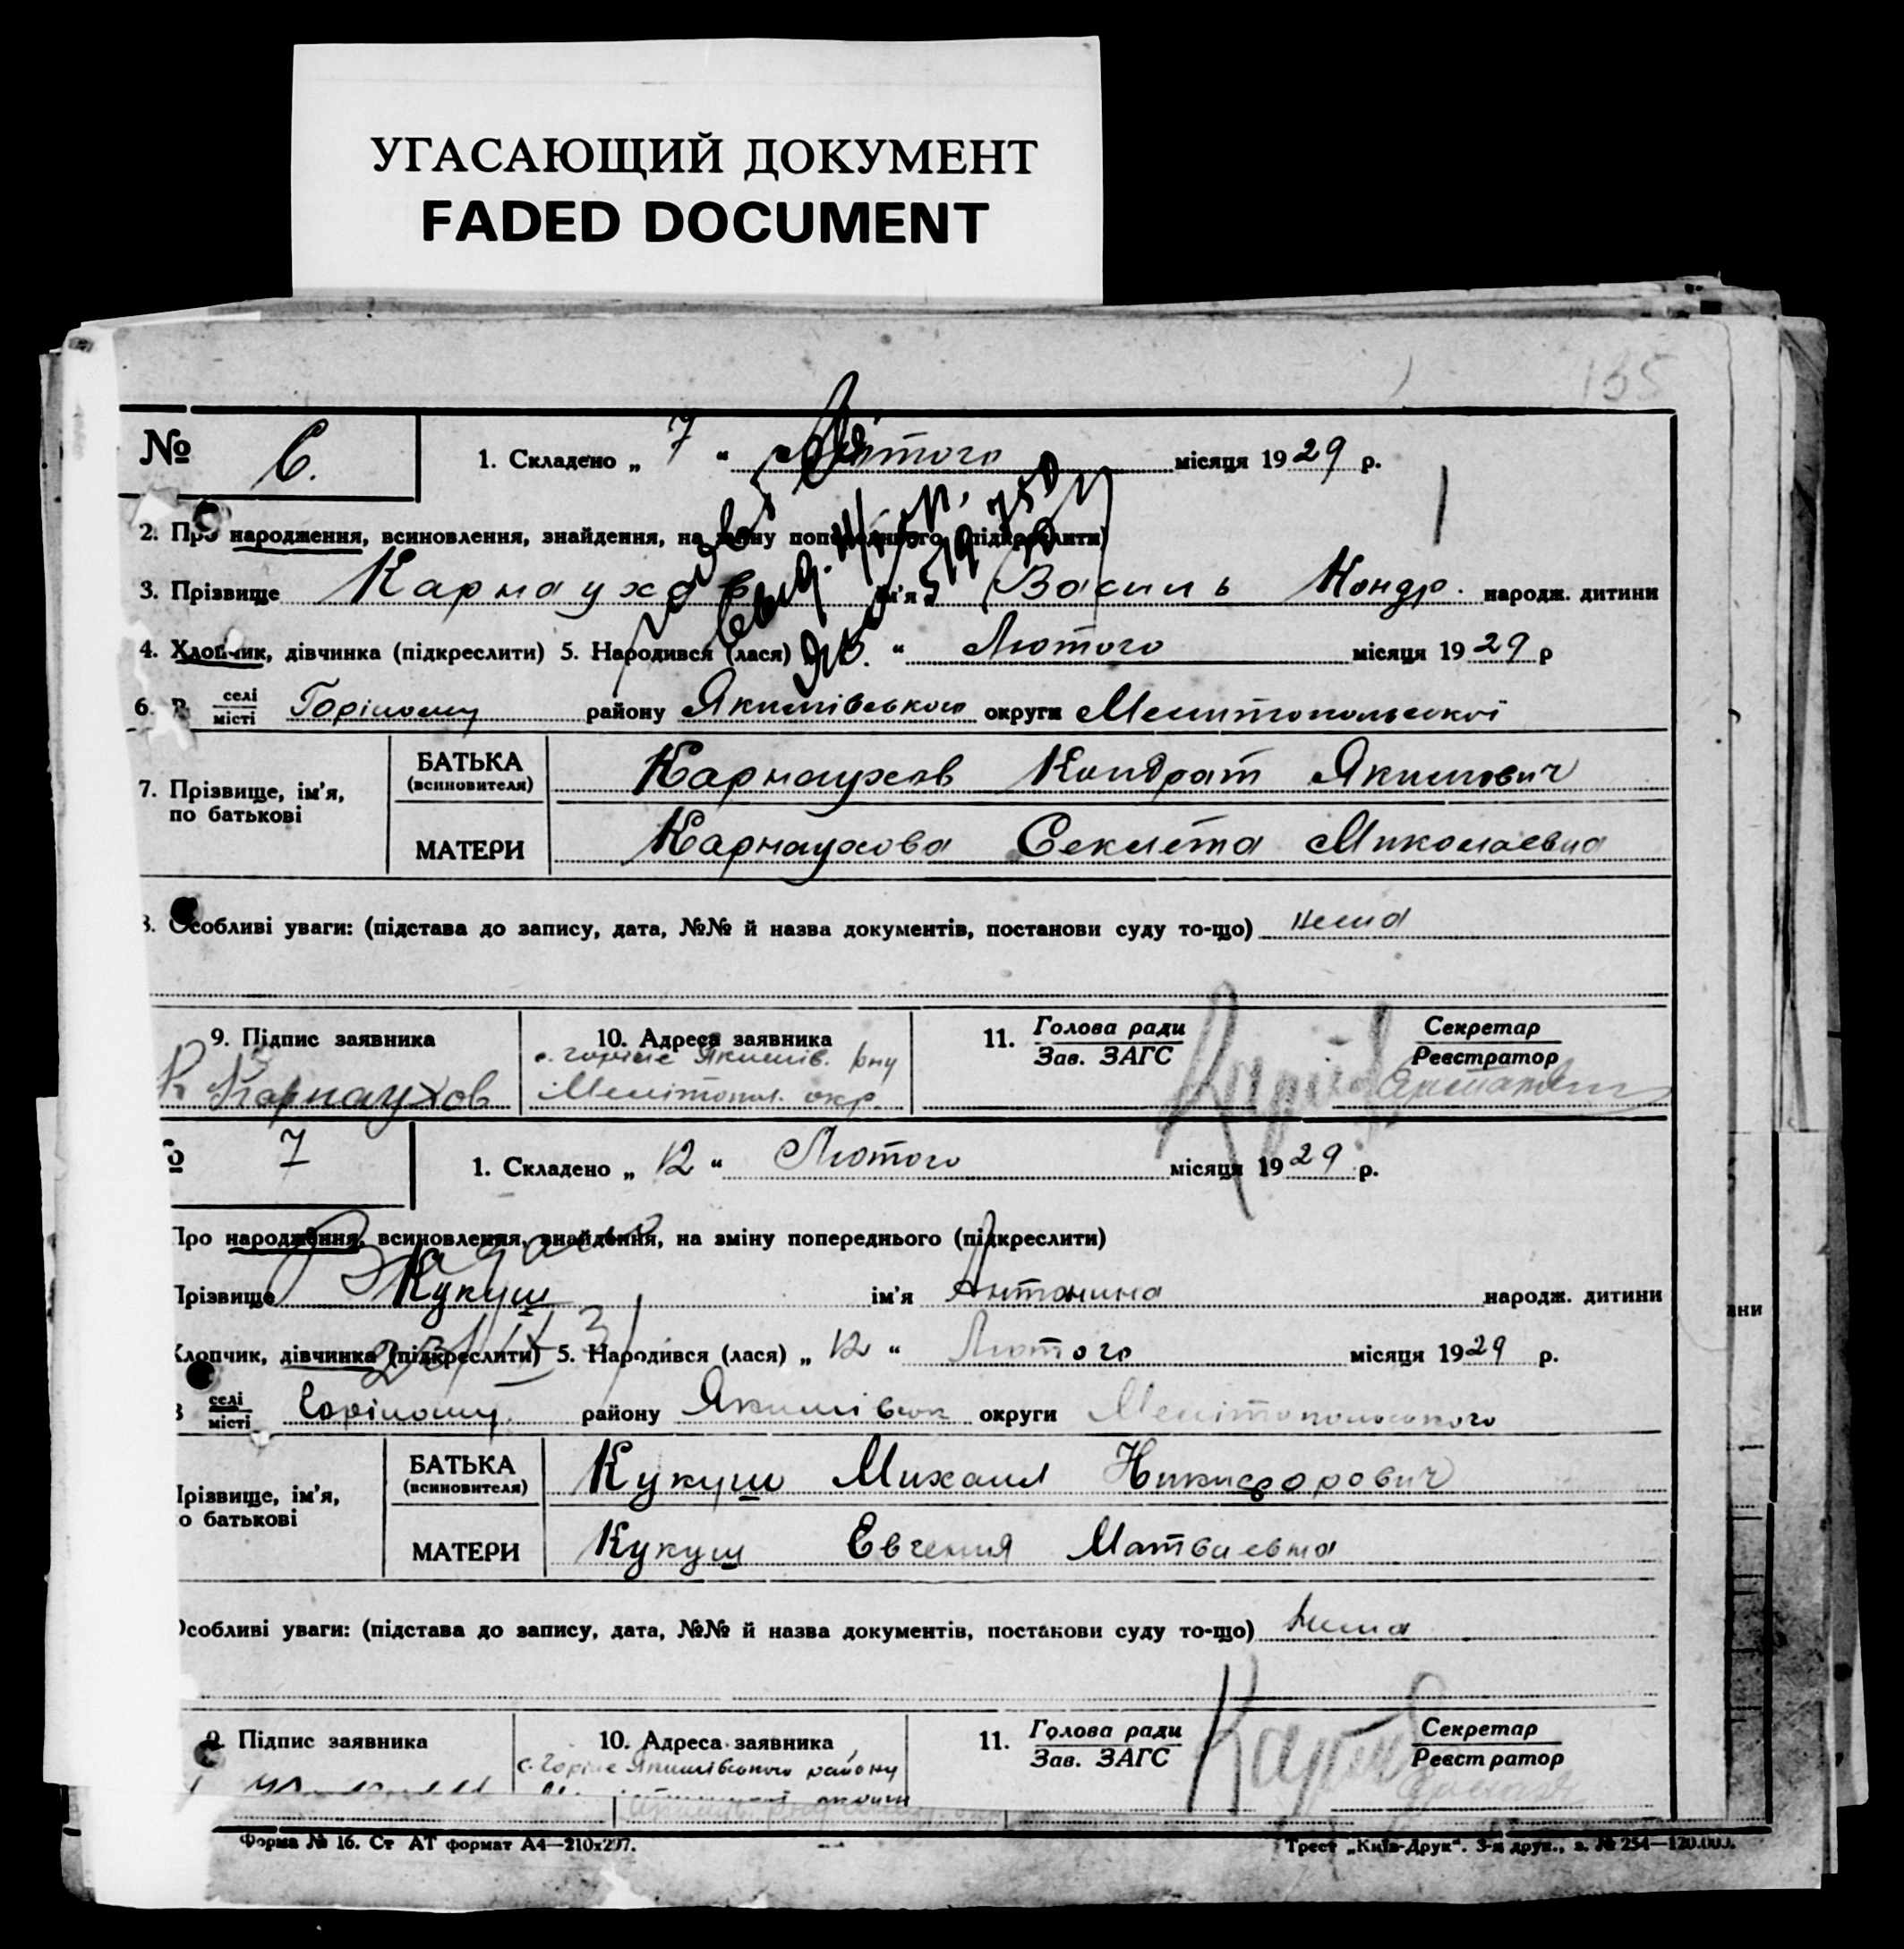 УГАСАЮЩИЙ ДОКУМЕНТ
FADED DOCUMENT
135
№ 6. 1. Складено „ 7 “ Лютого місяця 1929 р.
2. Про народження, всиновлення, знайдення, на зміну попереднього (підкреслити)
3. Прізвище Карнаухов ім'я Василь Кондр. народж. дитини
4. Хлопчик, дівчинка (підкреслити) 5. Народився (лася) “ Лютого місяця 1929 р
6. В селі місті Горіному району Якимівського округи Мелитопольської
7. Прізвище, ім'я, по батькові
БАТЬКА (всиновителя) Карнаухов Кондрат Якимович
МАТЕРИ Карнаухова Секлета Миколаевна
8. Особливі уваги: (підстава до запису, дата, №№ й назва документів, постанови суду то-що) нема
9. Підпис заявника 10. Адреса заявника 11. Голова ради Зав. ЗАГС Секретар Реєстратор
К Карнаухов с. Горіне Якимів. р-ну Мелітопол. окр.
№ 7 1. Складено „ 12 “ Лютого місяця 1929 р.
Про народження, всиновлення, знайдення, на зміну попереднього (підкреслити)
Прізвище Кукуш ім'я Антонина народж. дитини
Хлопчик, дівчинка (підкреслити) 5. Народився (лася) „ 12 “ Лютого місяця 1929 р.
В селі місті Горіному району Якимівськ округи Мелітопольського
Прізвище, ім'я, по батькові
БАТЬКА (всиновителя) Кукуш Михаил Никифорович
МАТЕРИ Кукуш Евгения Матвиевна
Особливі уваги: (підстава до запису, дата, №№ й назва документів, постанови суду то-що) Нема
9 Підпис заявника 10. Адреса заявника 11. Голова ради Зав. ЗАГС Секретар Реєстратор
с. Горіне Якимівського району
Форма № 16. Ст АТ формат А4—210х297. Трест „Київ-Друк“. 3-я друк., з. № 254—120.000.